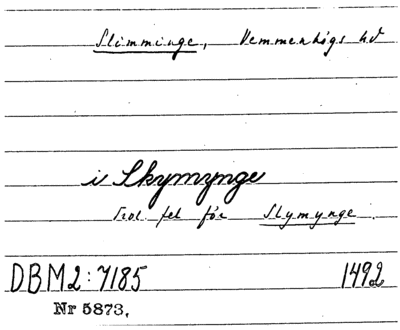 Slimminge, Vemmenhögs hd
i Skymynge
Trol. fel för Slymynge.
DBM2:7185 1492
Nr 5873,